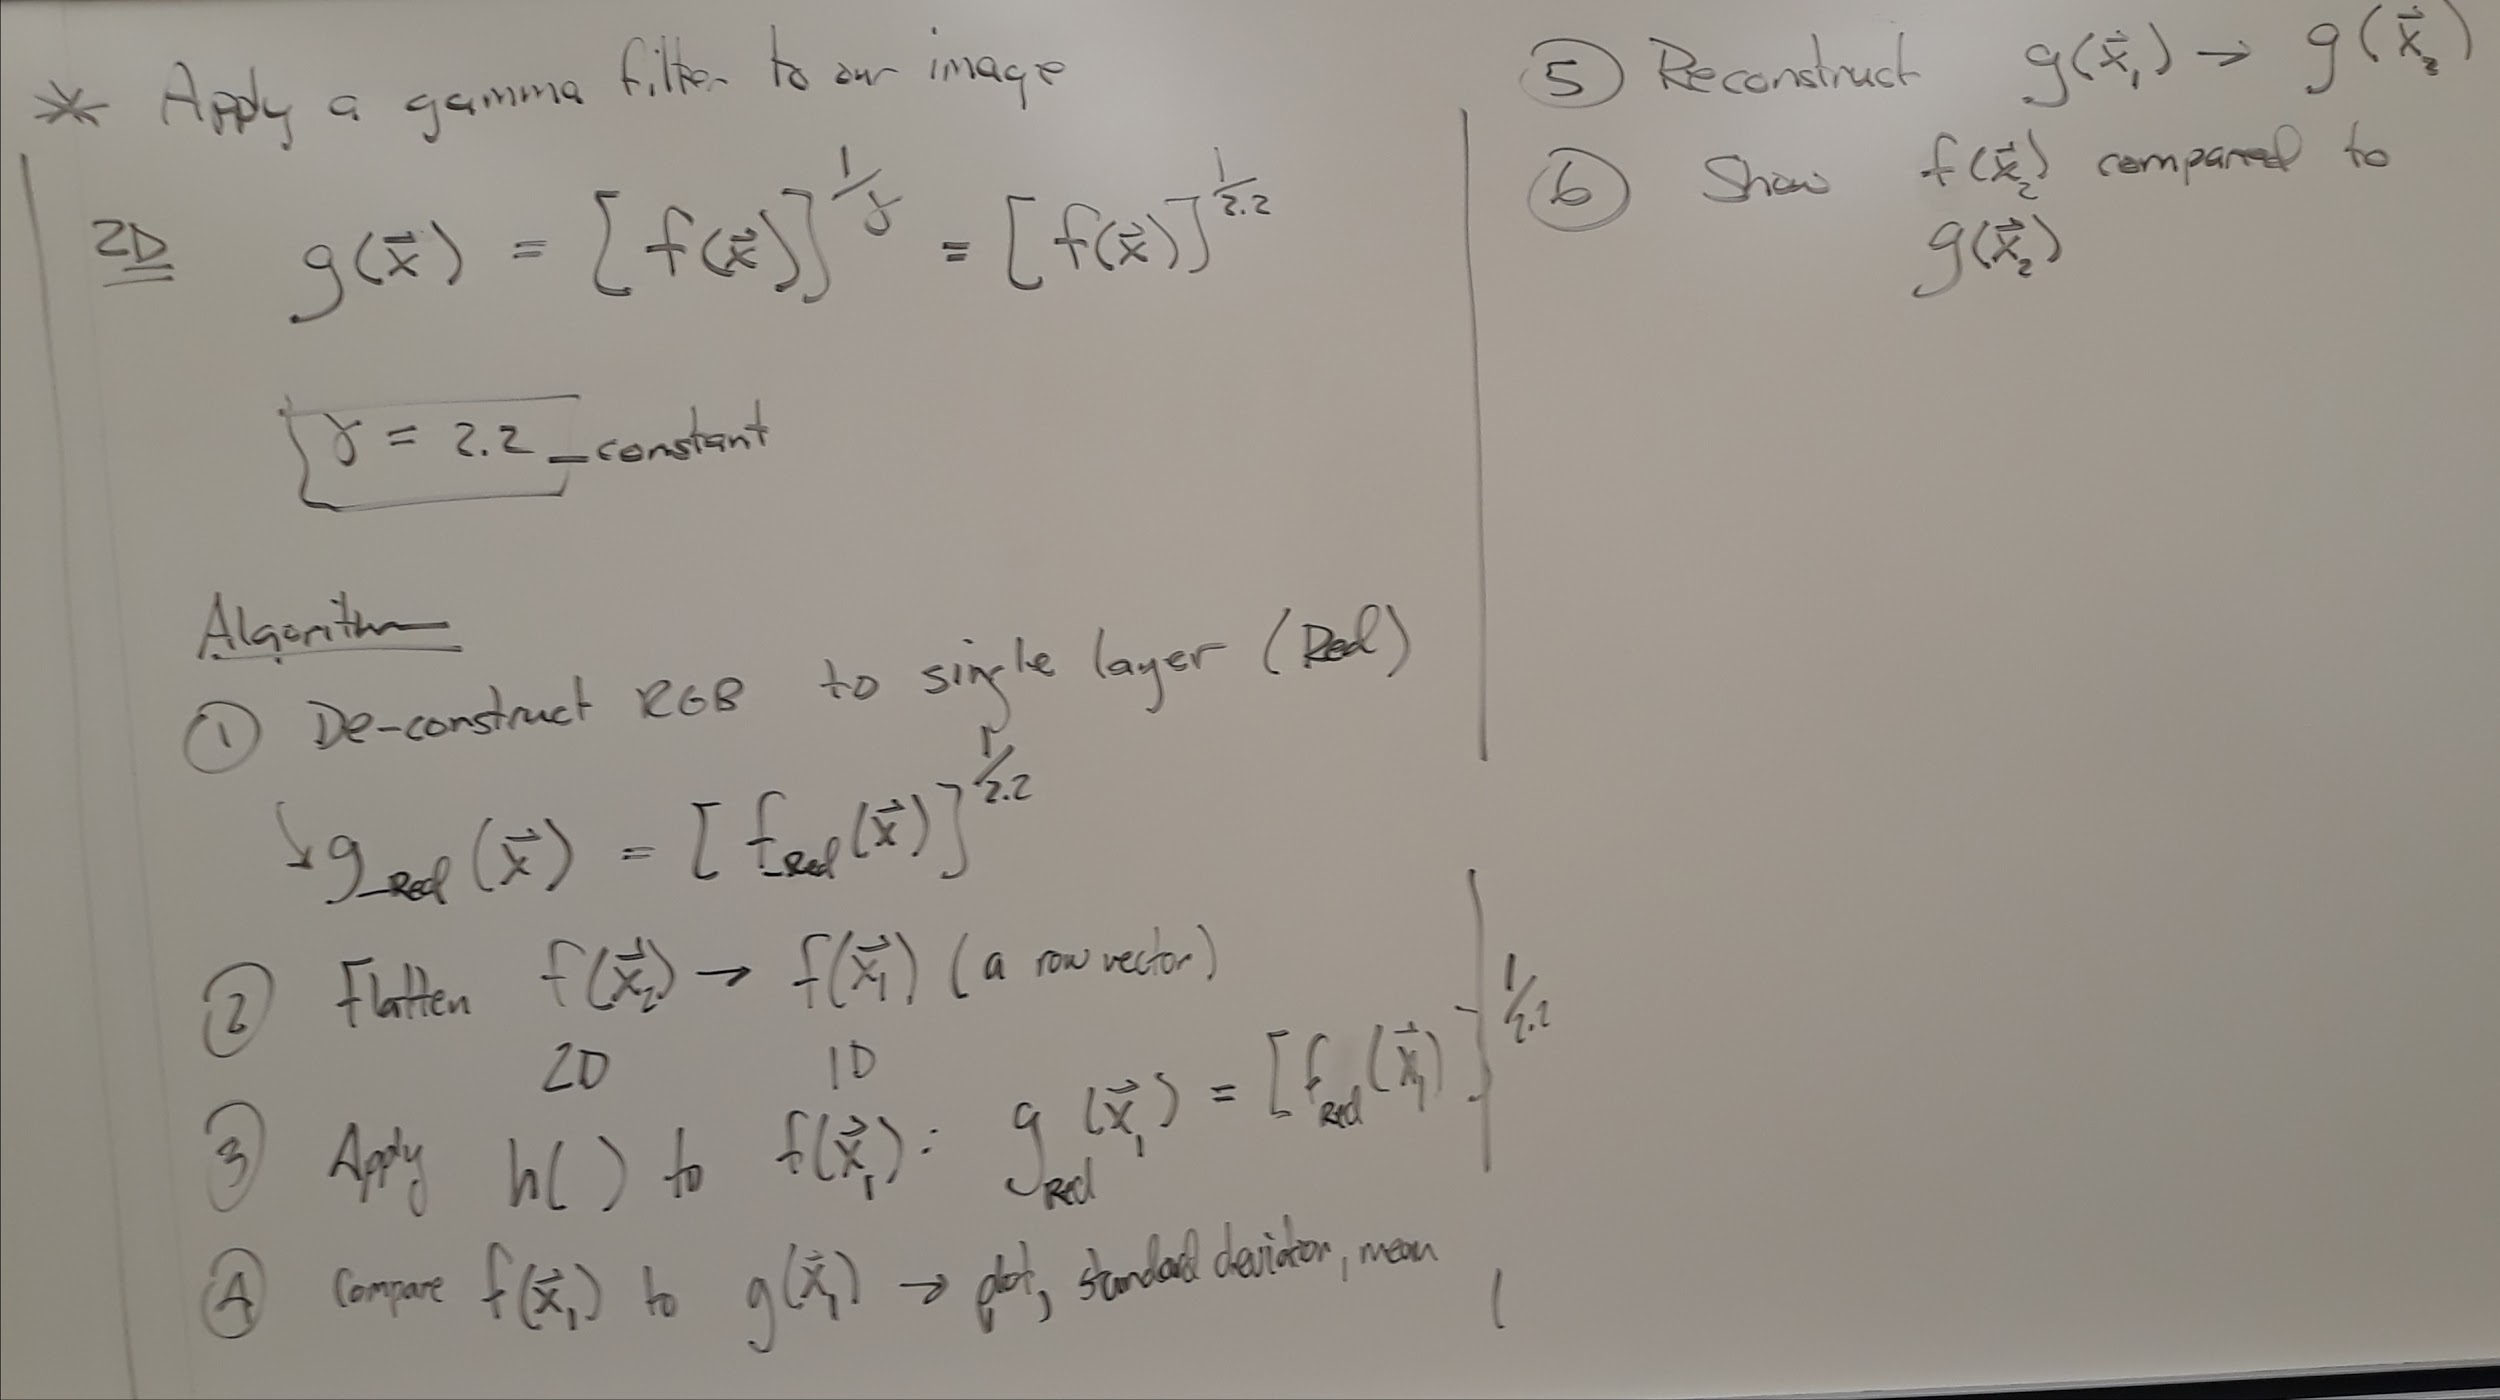 * Apply a gamma filter to our image
2D g(x⃗) = [f(x⃗)]^1/γ = [f(x⃗)]^1/2.2
γ = 2.2 _ constant
Algorithm
① De-construct RGB to single layer (Red)
↘ g_Red (x⃗) = [f_Red (x⃗)]^1/2.2
② Flatten f(x⃗₂) → f(x⃗₁) (a row vector)
2D 1D
③ Apply h( ) to f(x⃗₁): g_Red (x⃗₁) = [f_Red (x⃗₁)]^1/2.2
④ Compare f(x⃗₁) to g(x⃗₁) → plot, standard deviation, mean
⑤ Reconstruct g(x⃗₁) → g(x⃗₂)
⑥ Show f(x⃗₂) compared to
g(x⃗₂)